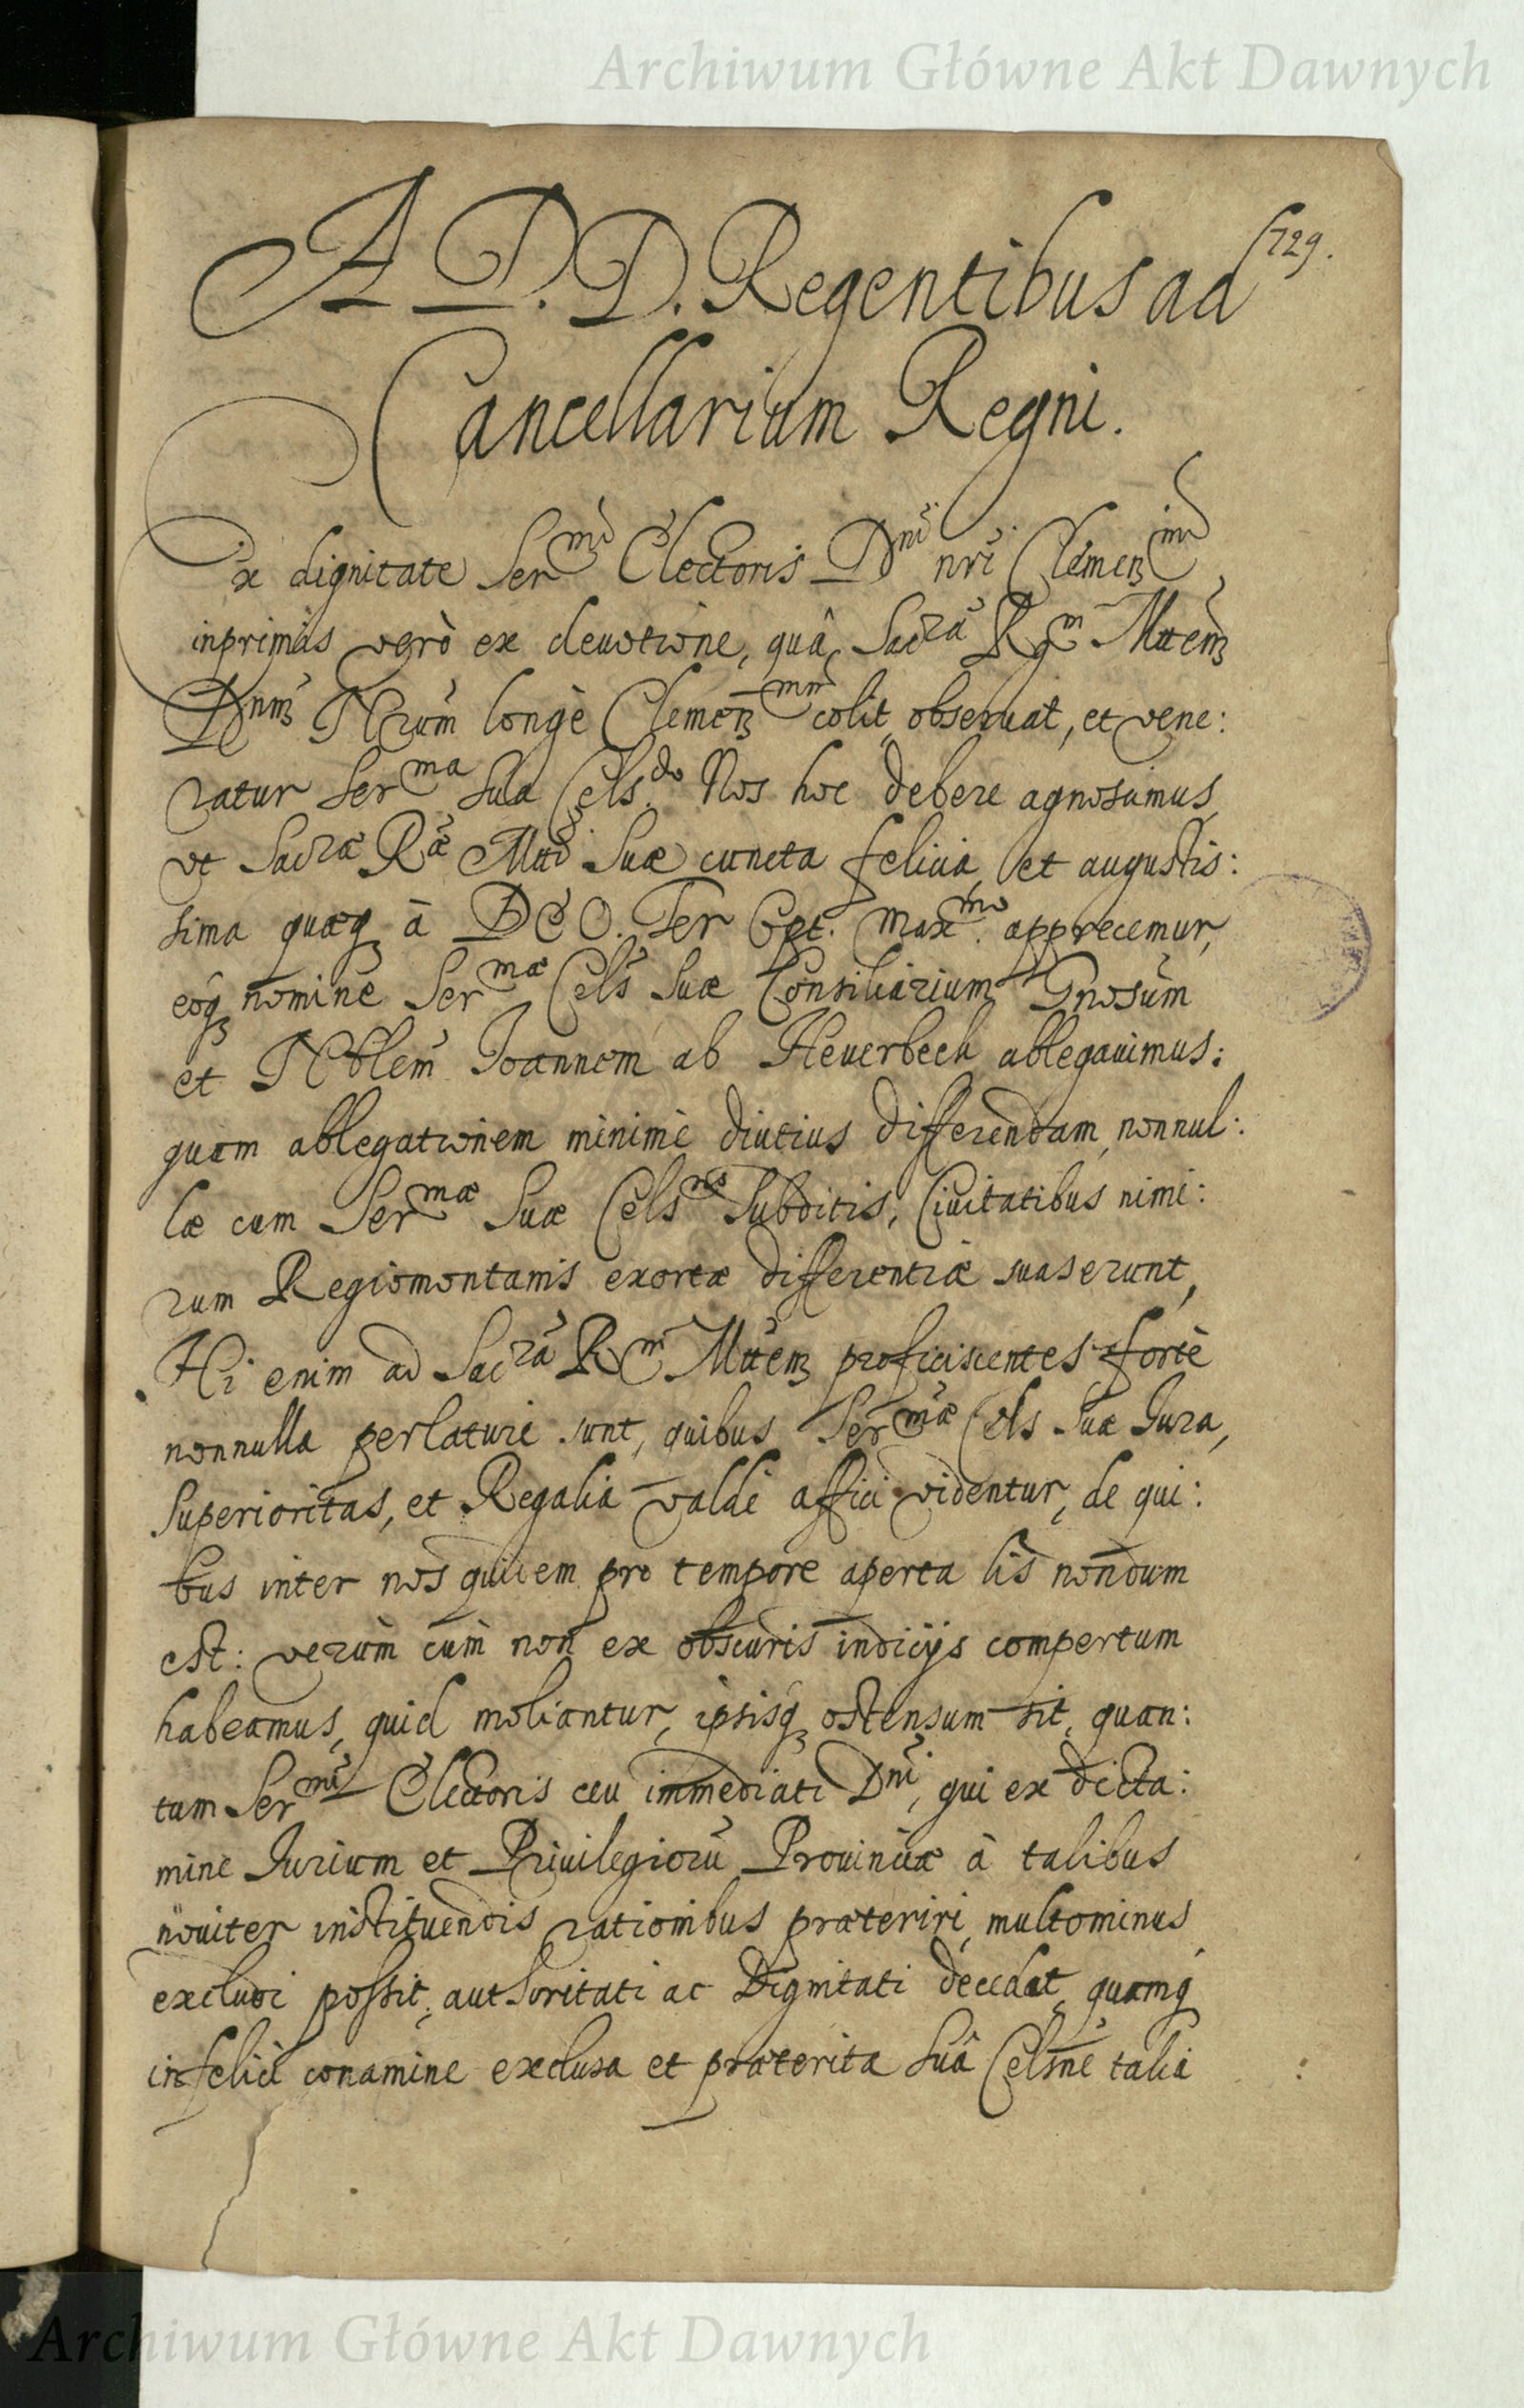 Archiwum Główne Akt Dawnych
729.
A D. D. Regentibus ad
Cancellarium Regni.
Ex dignitate Ser^mi Electoris D^ni nri Clemen^mi
inprimis verò ex deuotione, quâ Sac^rã R^m Mttem
D^nm Nrum longè Clemen^mm colit, obseruat, et vene:
ratur Ser^ma Sua Cels^do Nos hoc debere agnosimus,
vt Sac^ræ R^æ Mtti Suæ cuncta felicia, et augustis:
sima quæq à DEO. Ter Opt. Max^mo. apprecemur,
eoq nomine Ser^mæ Cels Suæ Consiliarium Gnosum
et Noblem Joannem ab Heuerbeck ablegauimus:
quam ablegationem minimè diutius differendam, nonnul:
læ cum Ser^mæ Suæ Cels^nis Subditis, Ciuitatibus nimi:
rum Regiomontanis exortæ differentiæ suaserunt,
Hi enim ad Sac^rã R^m Mttem proficiscentes fortè
nonnulla perlaturi sunt, quibus Ser^mæ Cels Suæ Jura,
Superioritas, et Regalia valdè affici videntur, de qui:
bus inter nos quidem pro tempore aperta lis nondum
est: verùm cùm non ex obscuris indicijs compertum
habeamus, quid moliantur, ipsisq ostensum sit, quan:
tum Ser^mi Electoris ceu immediati D^ni, qui ex dicta:
mine Jurium et Priuilegiorũ Prouinciæ à talibus
nouiter instituendis rationibus præteriri, multominus
excludi possit, authoritati ac Dignitati decedat, quamq
infelici conamine exclusa et præterita Suâ Celsne talia
Archiwum Główne Akt Dawnych